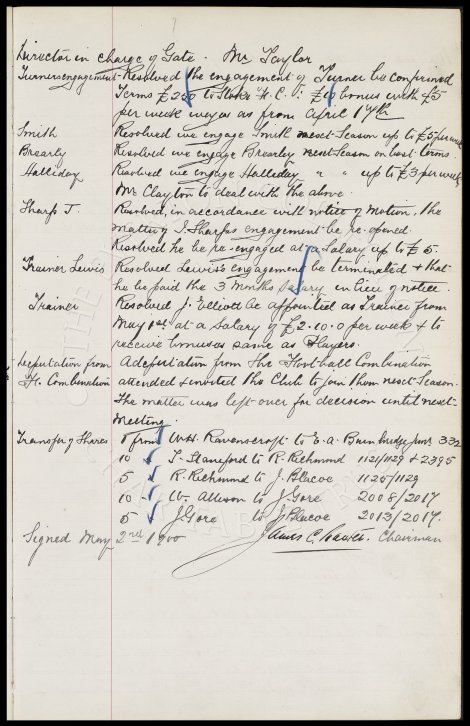 Director in charge of Gate. Mr Taylor
Turners engagement Resolved the engagement of Turner be confirmed
Terms £250 to Stoke F.C. & £10 bonus with £5
per week wages as from April 17th
Smith Resolved we engage Smith next Season up to £5 per week
Brearly Resolved we engage Brearley next Season on best terms
Halliday Resolved we engage Halliday " " up to £3 per week
Mr Clayton to deal with the above.
Sharp J. Resolved, in accordance with notice of motion, the
matter of J. Sharps engagement be re-opened.
Resolved he be re-engaged at a Salary up to £5.
Trainer Lewis Resolved Lewis's engagement be terminated & that
he be paid the 3 months Salary in lieu of notice.
Trainer Resolved J. Elliott be appointed as Trainer from
May 1st at a Salary of £2.10.0 per week & to
receive bonuses same as Players.
Deputation from A deputation from the Football Combination
F. Combination attended & invited this Club to join them next Season.
The matter was left over for decision until next
meeting.
Transfer of Shares 5 from W.H. Ravenscroft to E.A. Bainbridge Junr 332
10 " T. Staneford to R. Richmond 1121/1129 & 2395
5 " R. Richmond to J. Blacoe 1125/1129
10 " W. Allison to J Gore 2008/2017
5 " J Gore to J Blacoe 2013/2017.
Signed May 2nd 1900 James C. Baxter Chairman